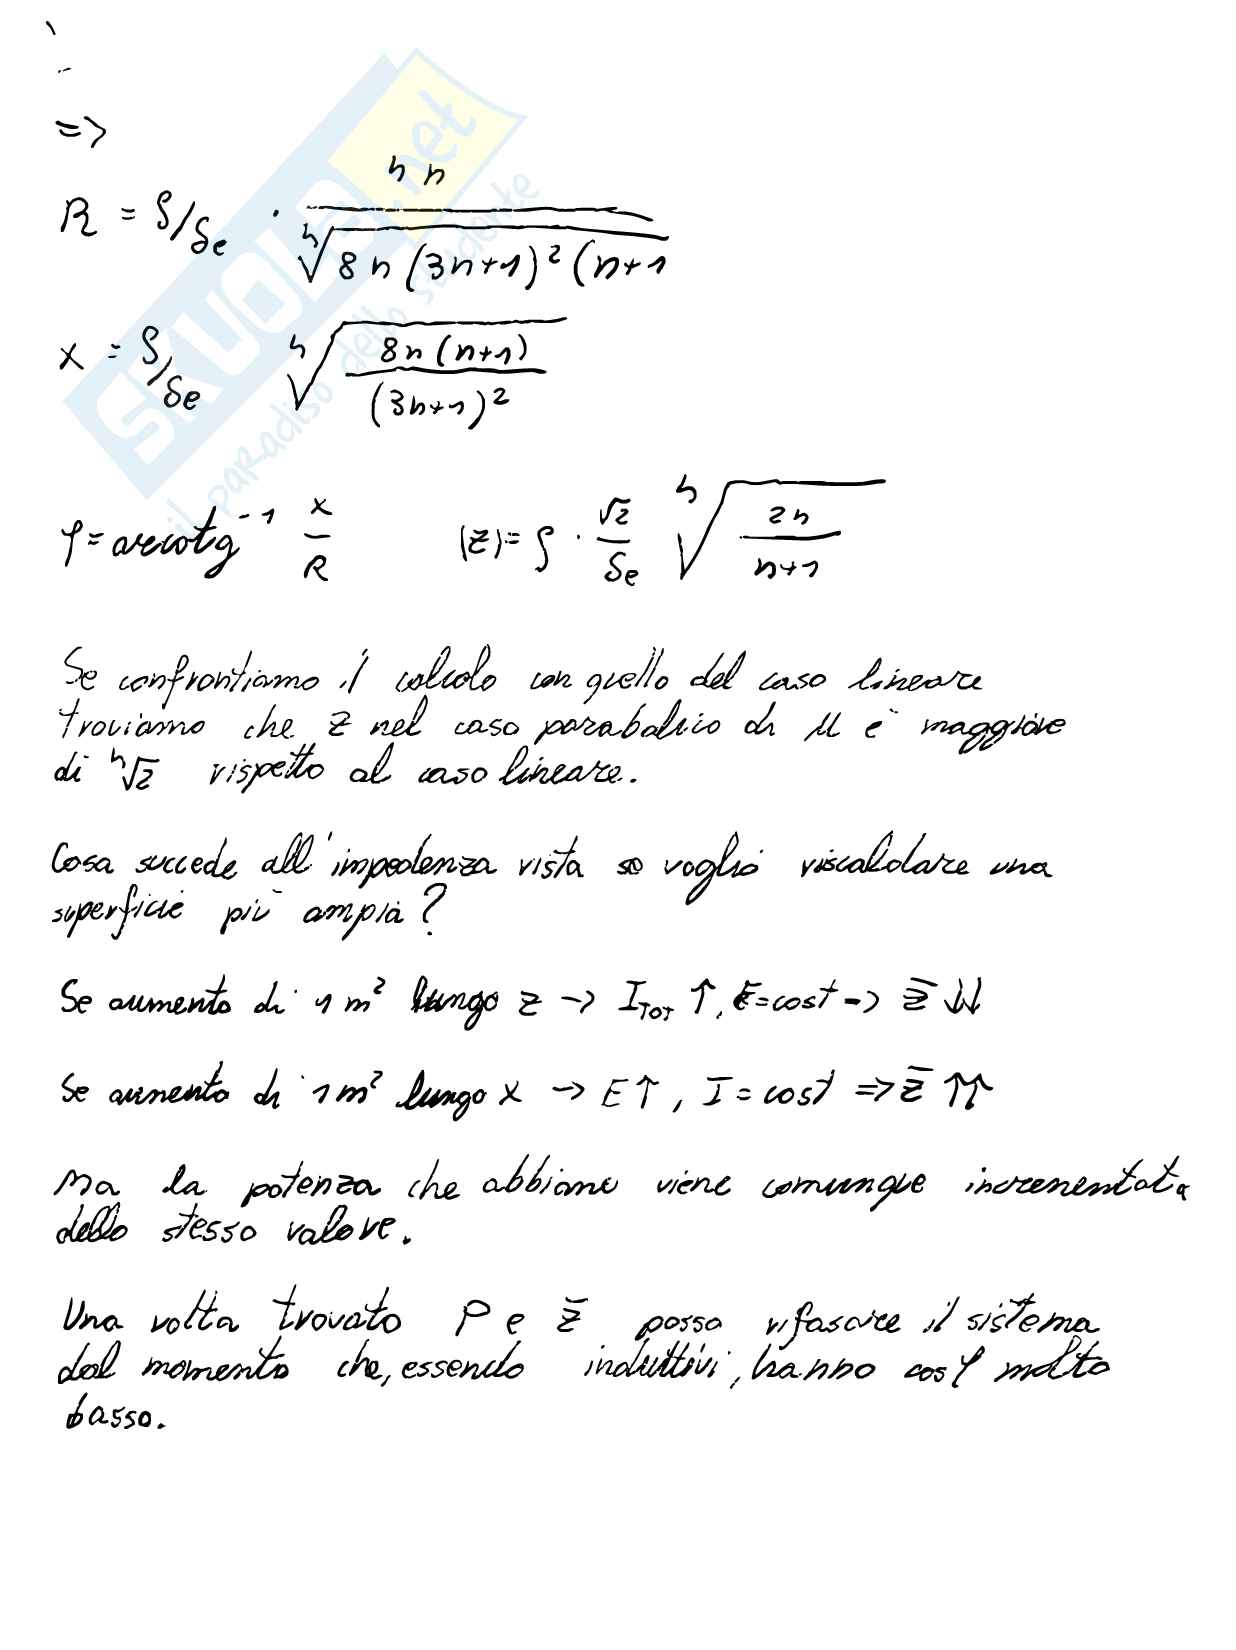 =>
R = ρ/δe · 4n / ⁴√(8n(3n+1)²(n+1
x = ρ/δe ⁴√(8n(n+1) / (3n+1)²)
φ = arcotg⁻¹ x/R |z| = ρ · √2/δe ⁴√(2n/(n+1))
Se confrontiamo il calcolo con quello del caso lineare
troviamo che z nel caso parabolico di μ è maggiore
di ⁴√2 rispetto al caso lineare.
Cosa succede all'impedenza vista se voglio riscaldare una
superficie più ampia?
Se aumento di 1 m² lungo z -> I_TOT ↑, E=cost -> z̄ ↓↓
Se aumento di 1 m² lungo x -> E↑, I = cost => z̄ ↑↑
Ma la potenza che abbiamo viene comunque incrementata
dello stesso valore.
Una volta trovato P e z̄ posso rifasare il sistema
dal momento che, essendo induttivi, hanno cosφ molto
basso.
SKUOLA.net
il paradiso dello studente